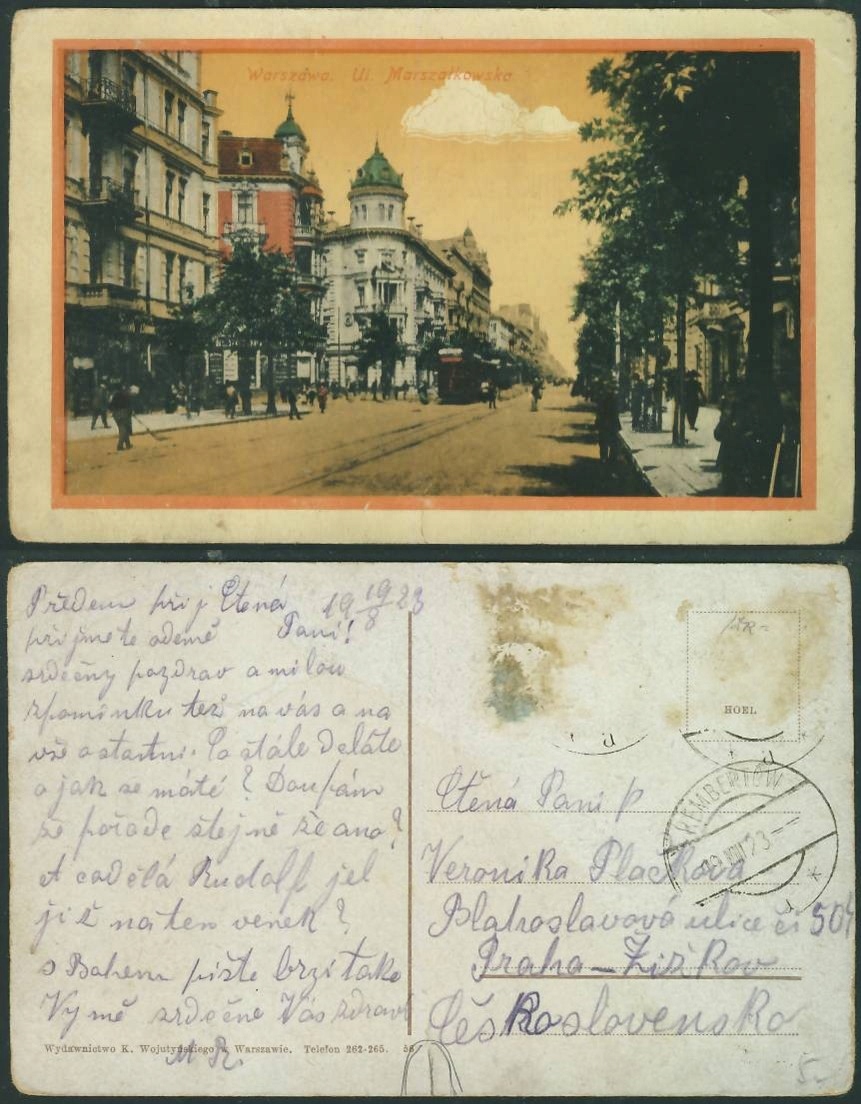 Warszawa. Ul. Marszałkowska
Předem přij Ctená 19 19/8 23
přijměte odemě Pani!
srdečny pozdrav a milou
zpominku též na vás a na
vše ostatni. Co stále Děláte
a jak se máté? Doufám
že pořade stejně že ano?
A codělá Rudolf jel
již na ten venek?
s Bohem pište brzi také
Vy mě srdečne Vás zdraví
M R.
Wydawnictwo K. Wojutyńskiego w Warszawie. Telefon 262-265. 55
HOEL
REMBERTÓW
19 VIII 23
Ctěná Pani p
Veronika Plackova
Blahoslavová ulice či 504
Praha – Žižkov
Československo
5.-